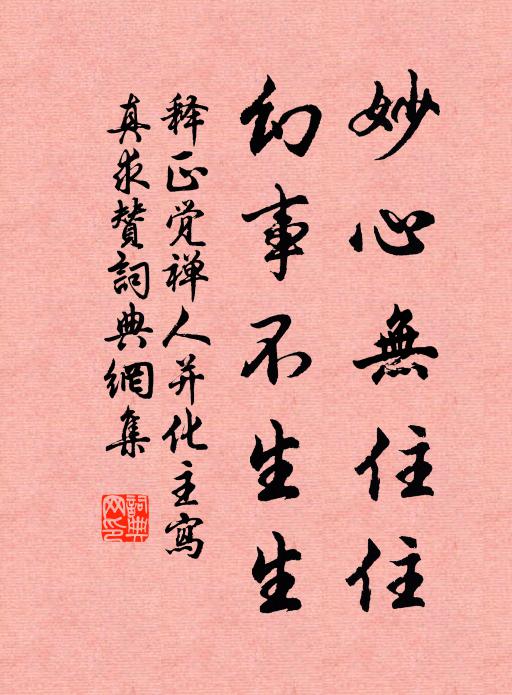 妙心無住住
幻事不生生
释正觉禅人并化主寫
真求贊詞典網集
詞典网印